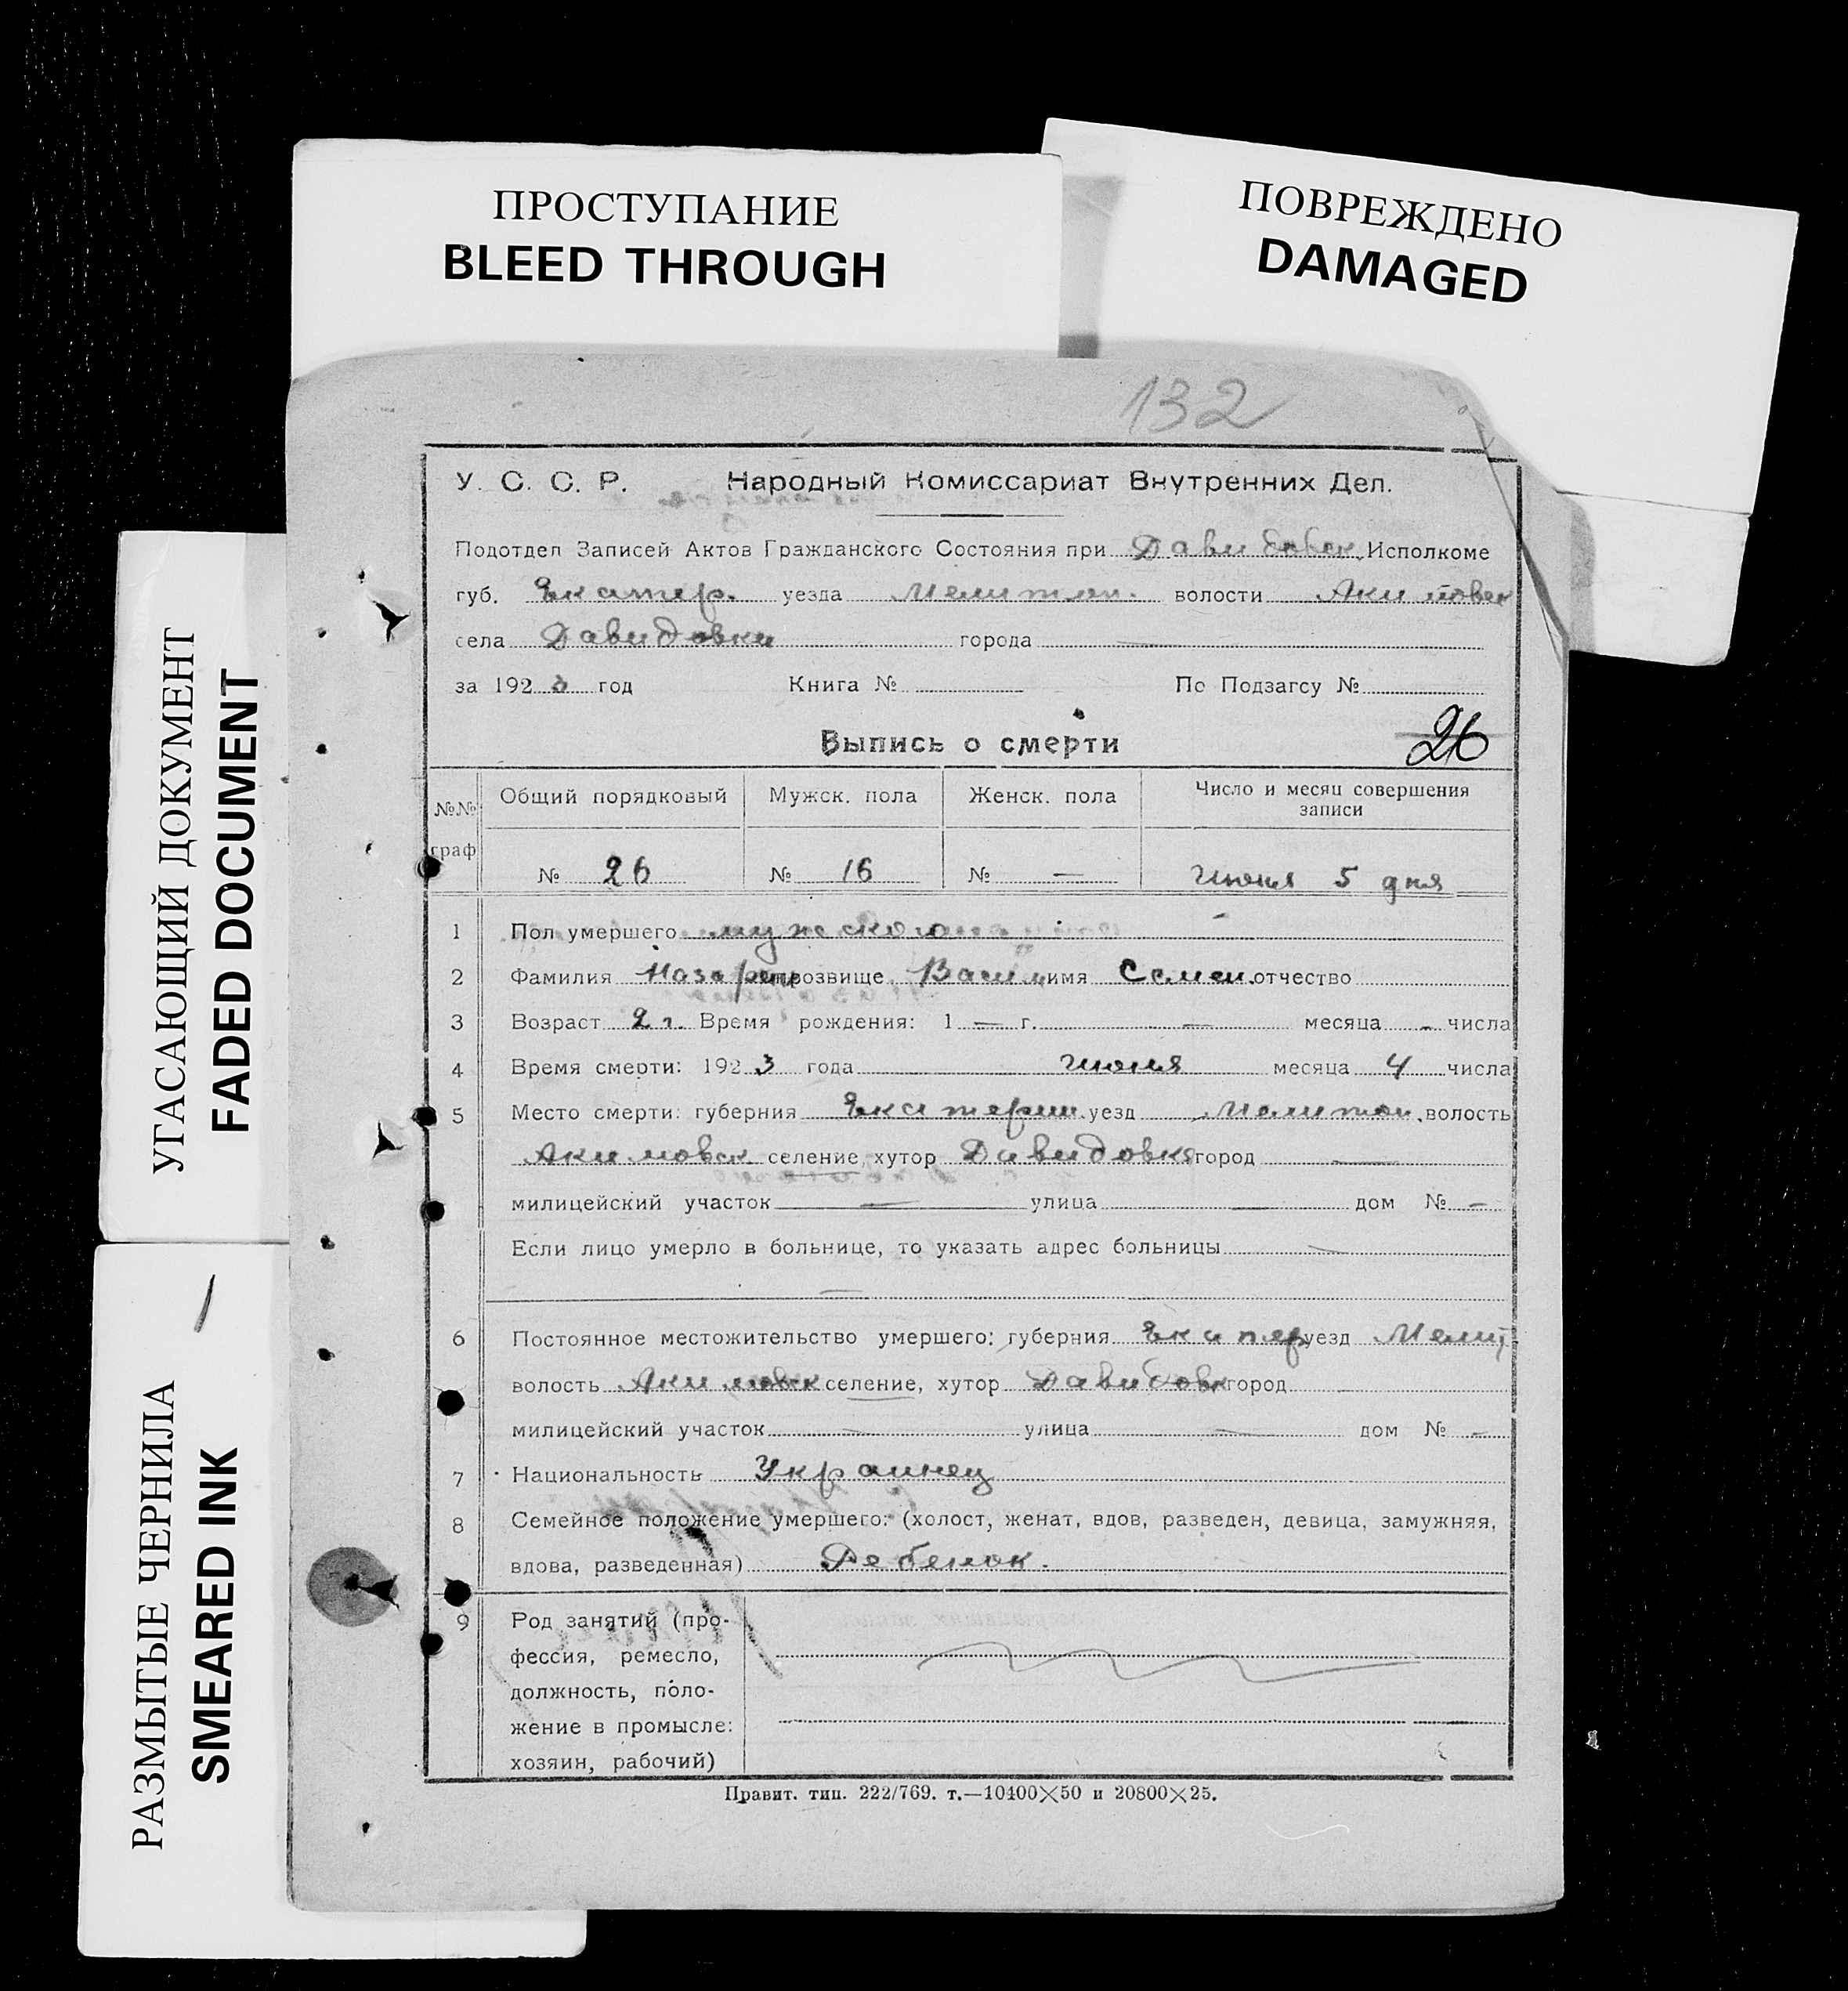 ПРОСТУПАНИЕ
BLEED THROUGH
ПОВРЕЖДЕНО
DAMAGED
УГАСАЮЩИЙ ДОКУМЕНТ
FADED DOCUMENT
РАЗМЫТЫЕ ЧЕРНИЛА
SMEARED INK
132
У. С. С. Р. Народный Комиссариат Внутренних Дел.
Подотдел Записей Актов Гражданского Состояния при Давидовск. Исполкоме
губ. Екатер. уезда Мелитоп. волости Акимовск
села Давидовки города —
за 1923 год Книга № По Подзагсу №
Выпись о смерти 26
№№ граф Общий порядковый Мужск. пола Женск. пола Число и месяц совершения записи
№ 26 № 16 № — Июня 5 дня
1 Пол умершего мужского
2 Фамилия прозвище Васил. имя Семен. отчество
3 Возраст 2 г. Время рождения: 1 — г. — месяца - числа
4 Время смерти: 1923 года Июня месяца 4 числа
5 Место смерти: губерния Екатерин. уезд Мелитоп. волость
Акимовск. селение, хутор Давидовка город —
милицейский участок — улица — дом № -
Если лицо умерло в больнице, то указать адрес больницы —
—
6 Постоянное местожительство умершего: губерния Екатер уезд Мелит.
волость Акимовск селение, хутор Давидовк город
милицейский участок — улица — дом № -
7 Национальность Украинец
8 Семейное положение умершего: (холост, женат, вдов, разведен, девица, замужняя,
вдова, разведенная) Ребенок.
9 Род занятий (про-
фессия, ремесло,
должность, поло-
жение в промысле:
хозяин, рабочий)
Правит. тип. 222/769. т.—10400×50 и 20800×25.